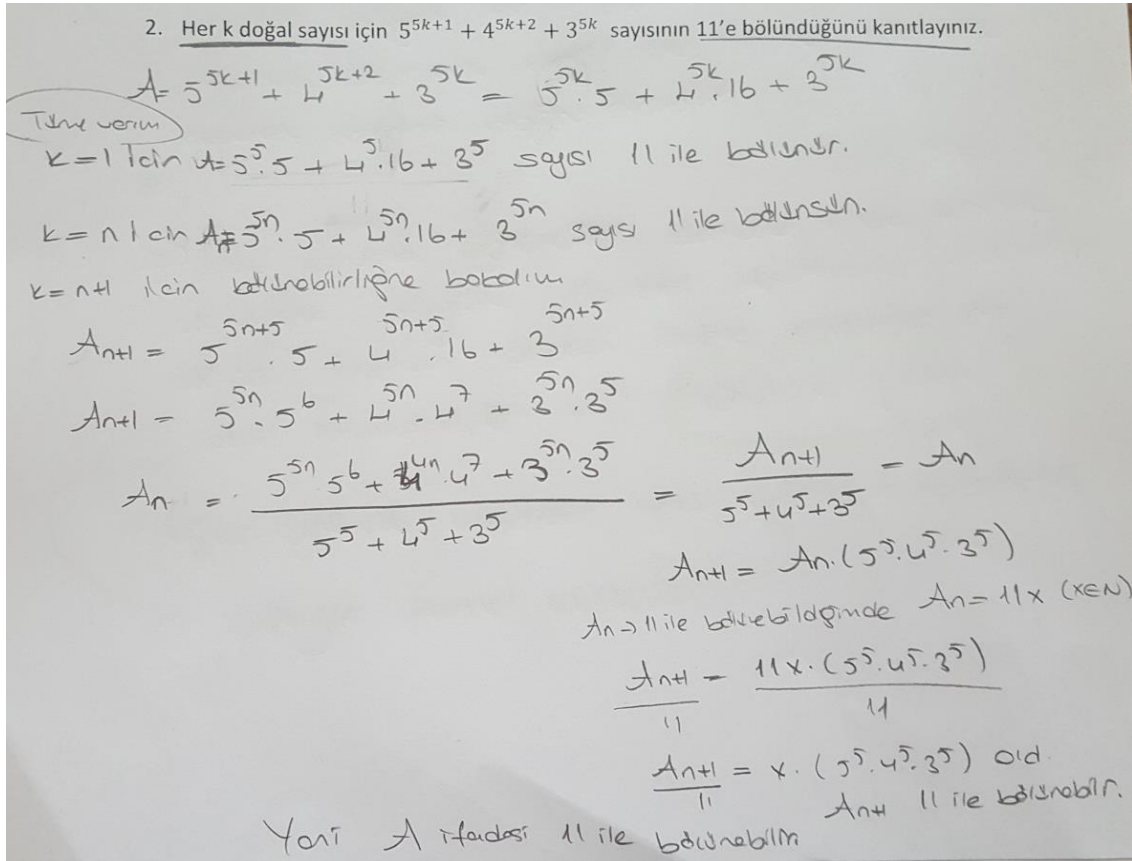 2. Her k doğal sayısı için 5^{5k+1} + 4^{5k+2} + 3^{5k} sayısının 11'e bölündüğünü kanıtlayınız.
A = 5^{5k+1} + 4^{5k+2} + 3^{5k} = 5^{5k}.5 + 4^{5k}.16 + 3^{5k}
Tüme varım
k=1 için A=5^5.5 + 4^5.16 + 3^5 sayısı 11 ile bölünür.
k=n için A_n=5^{5n}.5 + 4^{5n}.16 + 3^{5n} sayısı 11 ile bölünsün.
k=n+1 için bölünebilirliğine bakalım
A_{n+1} = 5^{5n+5}.5 + 4^{5n+5}.16 + 3^{5n+5}
A_{n+1} = 5^{5n}.5^6 + 4^{5n}.4^7 + 3^{5n}.3^5
A_n = \frac{5^{5n}.5^6 + 4^{4n}.4^7 + 3^{5n}.3^5}{5^5 + 4^5 + 3^5} = \frac{A_{n+1}}{5^5+4^5+3^5} = A_n
A_{n+1} = A_n.(5^5.4^5.3^5)
A_n → 11 ile A_n = 11x (x∈N)
\frac{A_{n+1}}{11} = \frac{11x.(5^5.4^5.3^5)}{11}
\frac{A_{n+1}}{11} = x.(5^5.4^5.3^5) old.
A_{n+1} 11 ile bölünebilir.
Yani A ifadesi 11 ile bölünebilir